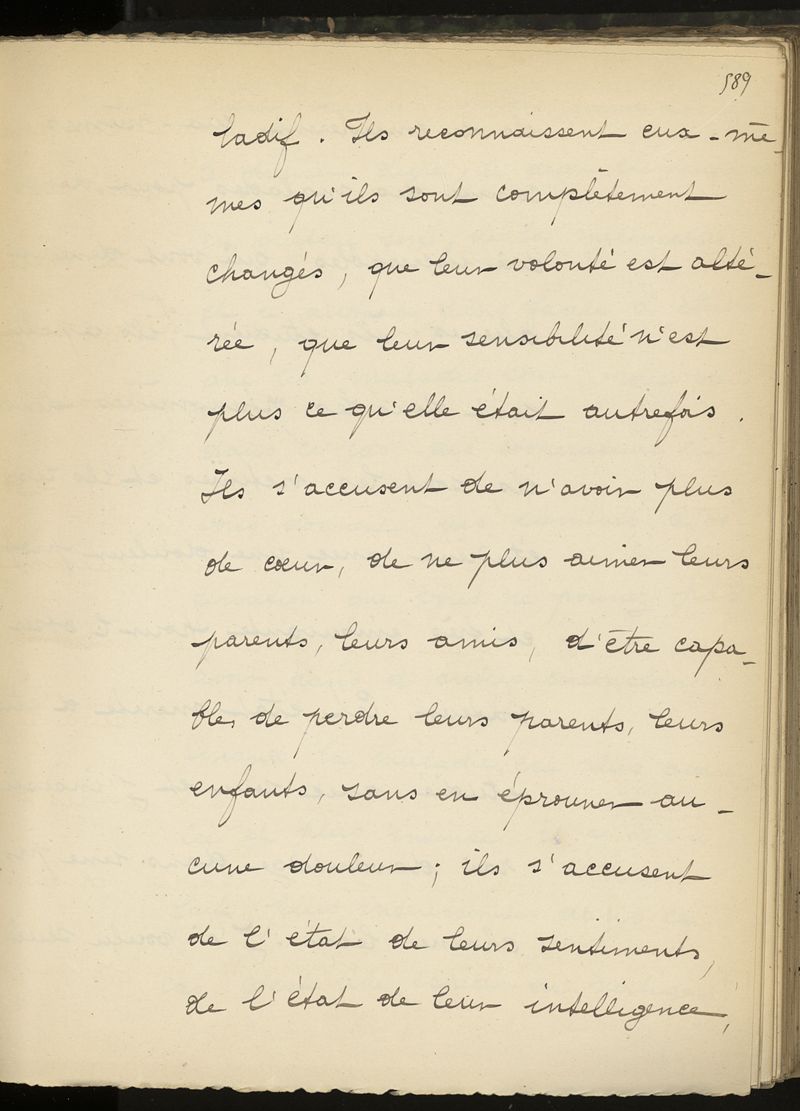 589
ladif. Ils reconnaissent eux-mê-
mes qu'ils sont complètement
changés, que leur volonté est alté-
rée, que leur sensibilité n'est
plus ce qu'elle était autrefois.
Ils s'accusent de n'avoir plus
de cœur, de ne plus aimer leurs
parents, leurs amis, d'être capa-
bles de perdre leurs parents, leurs
enfants, sans en éprouver au-
cune douleur; ils s'accusent
de l'état de leurs sentiments,
de l'état de leur intelligence,